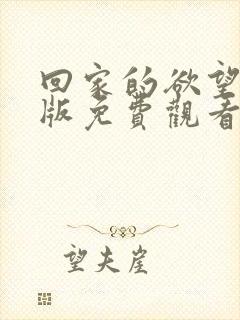 回家的欲望
版免費觀看
望夫崖